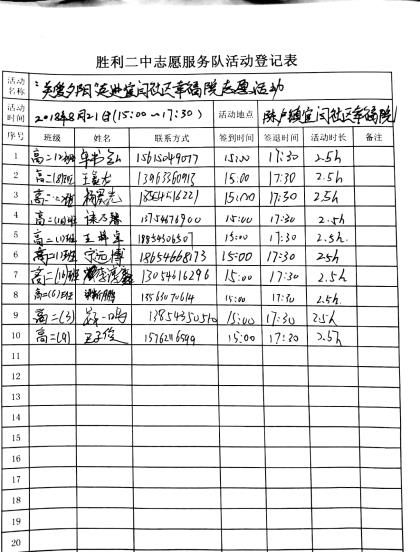 胜利二中志愿服务队活动登记表
活动名称 "关爱夕阳"走进宜门社区幸福院志愿活动
活动时间 2018年8月21日(15:00～17:30) 活动地点 陈户镇宜门社区幸福院
序号 班级 姓名 联系方式 签到时间 签退时间 活动时长 备注
1 高二(2)班 15615049017 15:00 17:30 2.5h
2 高二(8)班 13963360913 15:00 17:30 2.5h
3 15:00 17:30 2.5h
4 15:00 17:30 2.5h
5 高二(1)班 18854306507 15:00 17:30 2.5h
6 高二(1)班 宗远博 18654668173 15:00 17:30 2.5h
7 高二(16)班 13054616296 15:00 17:30 2.5h
8 高二(6)班 13563070614 15:00 17:30 2.5h
9 高二(3) 13854350510 15:00 17:30 2.5h
10 高二(9) 王子俊 15762116599 15:00 17:30 2.5h
11
12
13
14
15
16
17
18
19
20